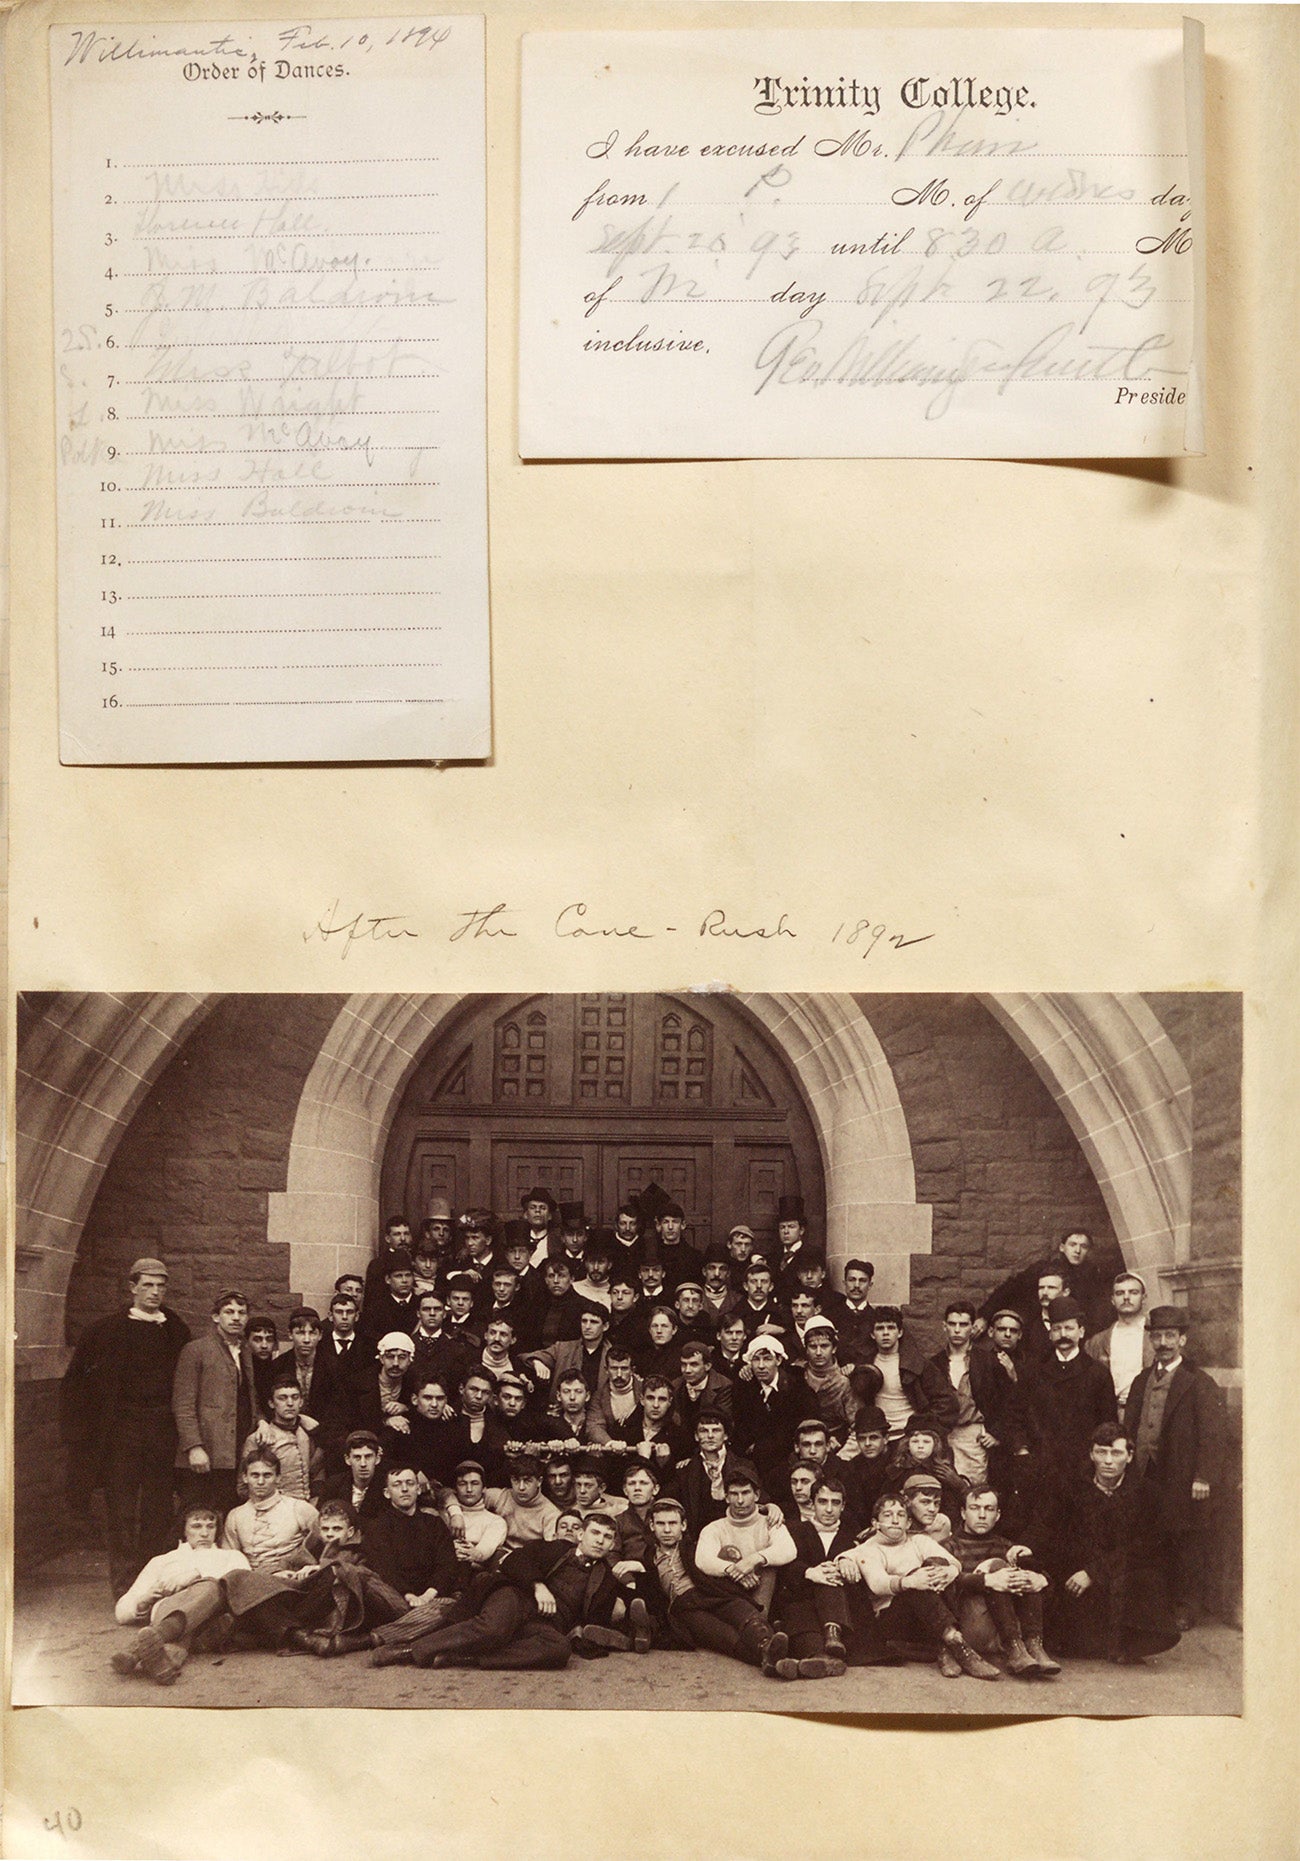 Willimantic, Feb. 10, 1894
Order of Dances.
1.
2. Miss Hills
3. Florence Hall.
4. Miss McAvoy.
5. J. M. Baldwin
6.
7. Miss Talbot
8. Miss Wright
Polka 9. Miss McAvoy
10. Miss Hall
11. Miss Baldwin
12.
13.
14
15.
16.
Trinity College.
I have excused Mr.
from 1 P. M. of Wednes day
Sept. 20 93 until 8.30 A. M
of Fri day Sept. 22. 93
inclusive.
Geo. Williamson Smith
Preside
After the Cane-Rush 1892
40